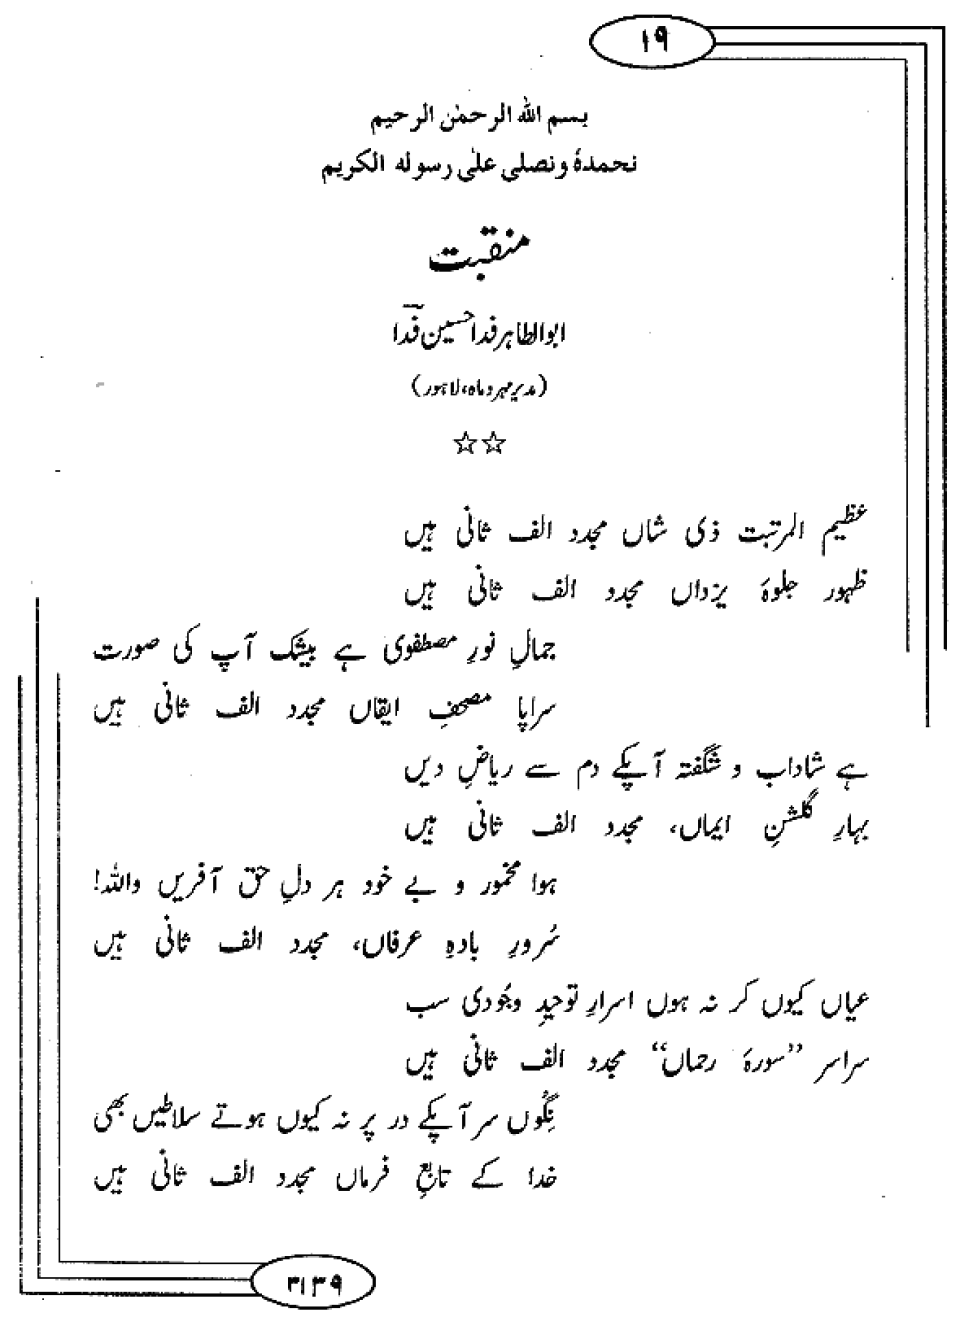 ۱۹
بسم اللہ الرحمٰن الرحیم
نحمدہٗ ونصلی علیٰ رسولہ الکریم
منقبت
ابوالطاہر فدا حسین فدؔا
(مدیر مہر و ماہ، لاہور)
☆☆
عظیم المرتبت ذی شاں مجدد الف ثانی ہیں
ظہور جلوۂ یزداں مجدد الف ثانی ہیں
جمالِ نورِ مصطفوی ہے بیشک آپ کی صورت
سراپا مصحفِ ایقاں مجدد الف ثانی ہیں
ہے شاداب و شگفتہ آپکے دم سے ریاضِ دیں
بہارِ گلشنِ ایماں، مجدد الف ثانی ہیں
ہوا مخمور و بے خود ہر دلِ حق آفریں واللہ!
سُرورِ بادہِ عرفاں، مجدد الف ثانی ہیں
عیاں کیوں کر نہ ہوں اسرارِ توحیدِ وجُودی سب
سراسر ”سورۂ رحماں“ مجدد الف ثانی ہیں
نِگُوں سر آپکے در پر نہ کیوں ہوتے سلاطیں بھی
خدا کے تابعِ فرماں مجدد الف ثانی ہیں
۳۱۳۹